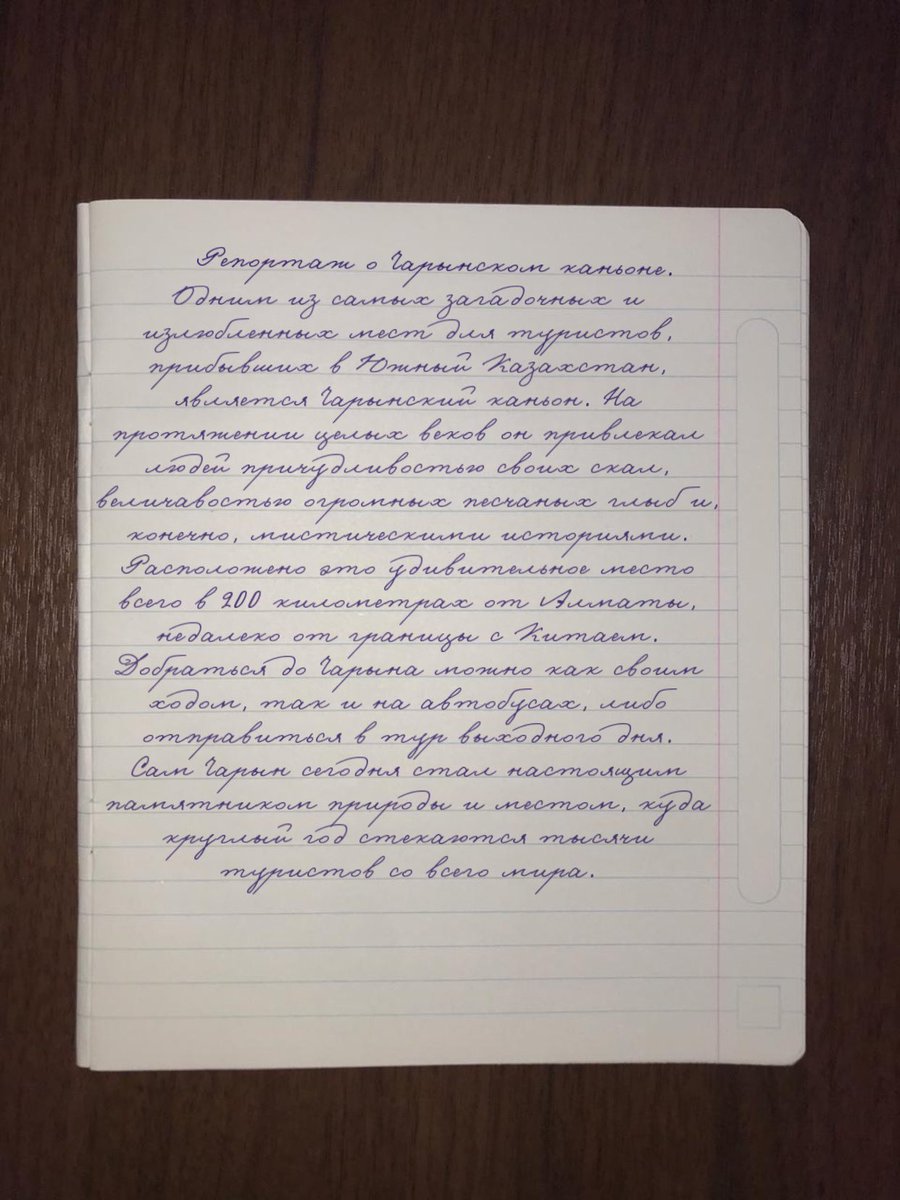 Репортаж о Чарынском каньоне.
Одним из самых загадочных и
излюбленных мест для туристов,
прибывших в Южный Казахстан,
является Чарынский каньон. На
протяжении целых веков он привлекал
людей причудливостью своих скал,
величавостью огромных песчаных глыб и,
конечно, мистическими историями.
Расположено это удивительное место
всего в 200 километрах от Алматы,
недалеко от границы с Китаем.
Добраться до Чарына можно как своим
ходом, так и на автобусах, либо
отправиться в тур выходного дня.
Сам Чарын сегодня стал настоящим
памятником природы и местом, куда
круглый год стекаются тысячи
туристов со всего мира.